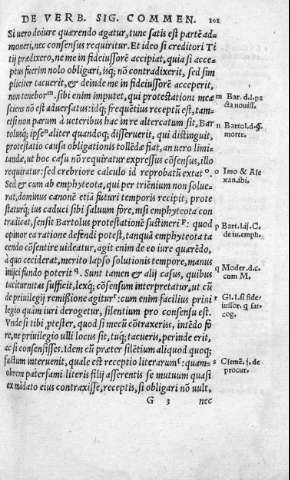 DE VERB. SIG. COMMEN. 101
Si uero de iure quærendo agatur, tunc satis est parte ad-
moneri, nec consensus requiritur. Et ideo si creditori Ti
tij prædixero, ne me in fideiussorē accipiat, quia si acce-
ptus fuerim nolo obligari, isq; nō contradixerit, sed sim
pliciter tacuerit, & deinde me in fideiussorē acceperit,
non tenebor m. sibi enim imputet, qui protestationi meæ
sciens nō est aduersatus: idq; frequētius receptū est, tam-
etsi non parum à ueteribus hac in re altercatum sit, Bar
tolusq; ipse n aliter quandoq; disseruerit, qui distinguit,
protestatio causa obligationis tollēdæ fiat, an uero limi-
tandæ, ut hoc casu nō requiratur expressus cōsensus, illo
requiratur: sed crebriore calculo id reprobatū extat o.
Sed & cum ab emphyteota, qui per triēnium non solue-
rat, dominus canonē etiā futuri temporis recipit, prote
staturq́, ius caduci sibi saluum fore, nisi emphyteota con
tradicat, sensit Bartolus protestationē sustineri p: quod
opinor ea ratione defendi potest, tanquā emphyteota ta
cendo cōsentire uideatur, agit enim de eo iure quærēdo,
à quo ceciderat, merito lapso solutionis tempore, manus
inijci fundo poterit q. Sunt tamen & alij casus, quibus
taciturnitas sufficit, lexq; cōsensum interpretatur, ut cū
de priuilegij remißione agitur r: cum enim facilius priui
legio quàm iuri derogetur, silentium pro consensu est.
Vnde si tibi presbyter, quod si mecū cōtraxeris, intēdo fo
re, ne priuilegio ulli locus sit, tuq; tacueris, perinde erit,
ac si consensisses. Idem cū præter silētium aliquod quoq;
factum interuenit, quale est receptio literarum s: quam-
obrem patersami literis filij asserentis se mutuum quasi
ex mādato eius contraxisse, receptis, si obligari nō uult,
G 3 nec
m Bar. d.l.pa
cta nouiss.
n Bartol. d. §.
morte.
o Imo & Ale
xan. ibi.
p Bart. l.ij. C.
de iu. emph.
q Moder. d. c.
cum M.
r Gl. l. si fide
iussor. q. sat.
cog.
s Clemē. j. de
procur.